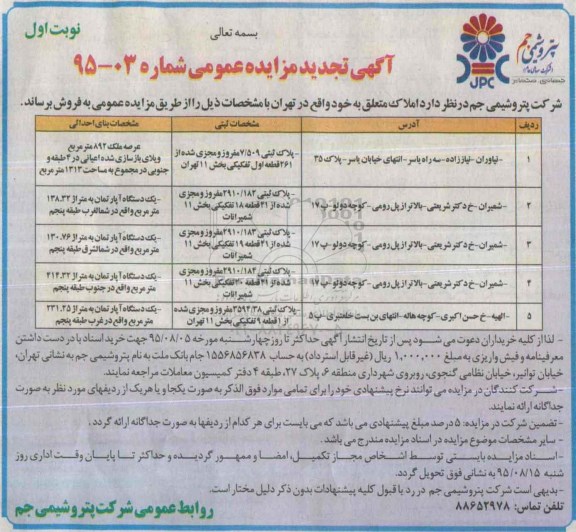 بسمه تعالی
نوبت اول
پتروشیمی جم
JPC
آگهی تجدید مزایده عمومی شماره ۰۳-۹۵
شرکت پتروشیمی جم در نظر دارد املاک متعلق به خود واقع در تهران با مشخصات ذیل را از طریق مزایده عمومی به فروش برساند.
ردیف آدرس مشخصات ثبتی مشخصات بنای احداثی
۱ -نیاوران -نیاززاده -سه راه یاسر -انتهای خیابان یاسر- پلاک ۳۵
-پلاک ثبتی ۷/۵۰۹ مفروز و مجزی شده از
۲۶۱ قطعه اول تفکیکی بخش ۱۱ تهران
عرصه ملک ۸۹۲ متر مربع
ویلای بازسازی شده اعیانی در ۲ طبقه و
جنوبی در مجموع به مساحت ۱۳۱۳ متر مربع
۲ -شمیران -خ دکتر شریعتی -بالاتر از پل رومی -کوچه دولو -پ ۱۷
-پلاک ثبتی ۲۹۱۰/۱۸۲ مفروز و مجزی
شده از ۲۱ قطعه ۱۸ تفکیکی بخش ۱۱
شمیرانات
-یک دستگاه آپارتمان به متراژ ۱۳۸.۳۲
متر مربع واقع در شمالغرب طبقه پنجم
۳ -شمیران -خ دکتر شریعتی -بالاتر از پل رومی -کوچه دولو -پ ۱۷
-پلاک ثبتی ۲۹۱۰/۱۸۳ مفروز و مجزی
شده از ۲۱ قطعه ۱۹ تفکیکی بخش ۱۱
شمیرانات
-یک دستگاه آپارتمان به متراژ ۱۳۰.۷۶
متر مربع واقع در شمالشرق طبقه پنجم
۴ -شمیران -خ دکتر شریعتی -بالاتر از پل رومی -کوچه دولو -پ ۱۷
-پلاک ثبتی ۲۹۱۰/۱۸۴ مفروز و مجزی
شده از ۲۱ قطعه ۲۰ تفکیکی بخش ۱۱
شمیرانات
-یک دستگاه آپارتمان به متراژ ۲۱۴.۳۲
متر مربع واقع در جنوب طبقه پنجم
۵ -الهیه -خ حسن اکبری -کوچه هاله -انتهای بن بست
-پلاک ثبتی ۳۵۹۴.۳۸ مفروز و مجزی شده
از ۱ قطعه ۹ تفکیکی بخش ۱۱ تهران
-یک دستگاه آپارتمان به متراژ ۲۳۱.۲۵
متر مربع واقع در غرب طبقه پنجم
- لذا از کلیه خریداران دعوت می شود پس از تاریخ انتشار آگهی حداکثر تا روز چهارشنبه مورخه ۹۵/۰۸/۰۵ جهت خرید اسناد با در دست داشتن
معرفینامه و فیش واریزی به مبلغ ۱,۰۰۰,۰۰۰ ریال (غیر قابل استرداد) به حساب ۱۵۵۶۸۵۶۸۳۸ جام بانک ملت به نام پتروشیمی جم به نشانی تهران،
خیابان توانیر، خیابان نظامی گنجوی، روبروی شهرداری منطقه ۶، پلاک ۲۷، طبقه ۴ دفتر کمیسیون معاملات مراجعه نمایند.
-شرکت کنندگان در مزایده می توانند نرخ پیشنهادی خود را برای تمامی موارد فوق الذکر به صورت یکجا و یا هریک از ردیفهای مورد نظر به صورت
جداگانه ارائه نمایند.
-تضمین شرکت در مزایده: ۵ درصد مبلغ پیشنهادی می باشد که می بایست برای هر کدام از ردیفها به صورت جداگانه ارائه گردد.
- سایر مشخصات موضوع مزایده در اسناد مزایده مندرج می باشد.
-اسناد مزایده بایستی توسط اشخاص مجاز تکمیل، امضا و ممهور گردیده و حداکثر تا پایان وقت اداری روز
شنبه ۹۵/۰۸/۱۵ به نشانی فوق تحویل گردد.
-بدیهی است شرکت پتروشیمی جم در رد یا قبول کلیه پیشنهادات بدون ذکر دلیل مختار است.
تلفن تماس: ۸۸۶۵۲۹۷۸
روابط عمومی شرکت پتروشیمی جم